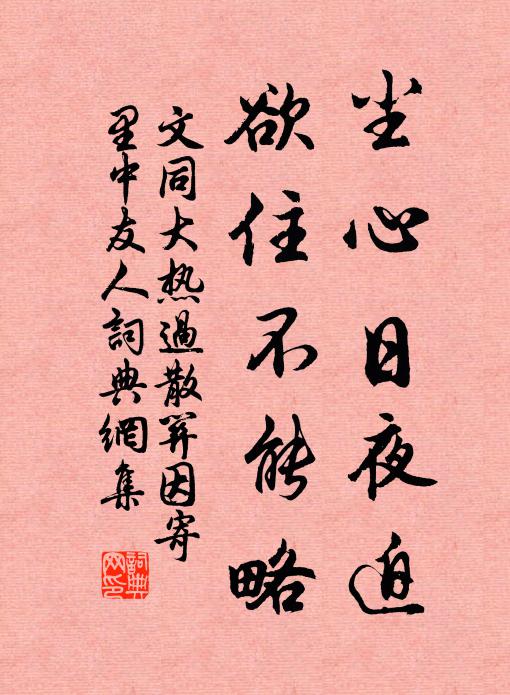 尘心日夜迫
欲住不能略
文同大热過散關因寄
里中友人詞典網集
詞典網印